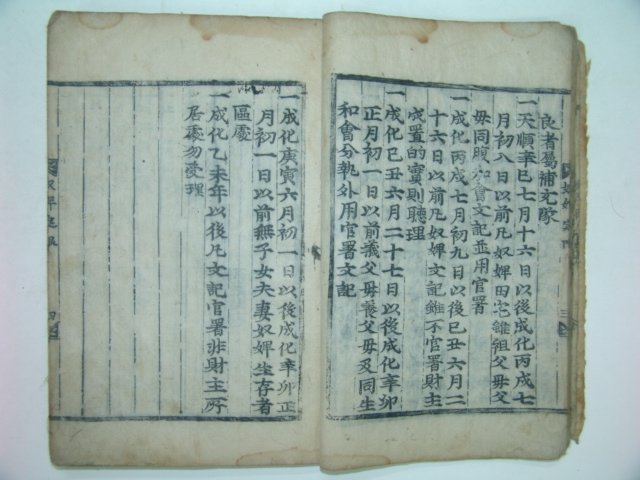 良者屬補充隊
一天順辛巳七月十六日以後成化丙戌七
月初八日以前凡奴婢田宅雖祖父母父
母同腹和會文記並用官署
一成化丙戌七月初九日以後己丑六月二
十六日以前凡奴婢文記雖不官署財主
成置的實則聽理
一成化己丑六月二十七日以後成化辛卯
正月初一日以前義父母養父母及同生
和會分執外用官署文記
一成化庚寅六月初一日以後成化辛卯正
月初一日以前無子女夫妻奴婢生存者
區處
一成化乙未年以後凡文記官署非財主所
居處勿受理
四
三